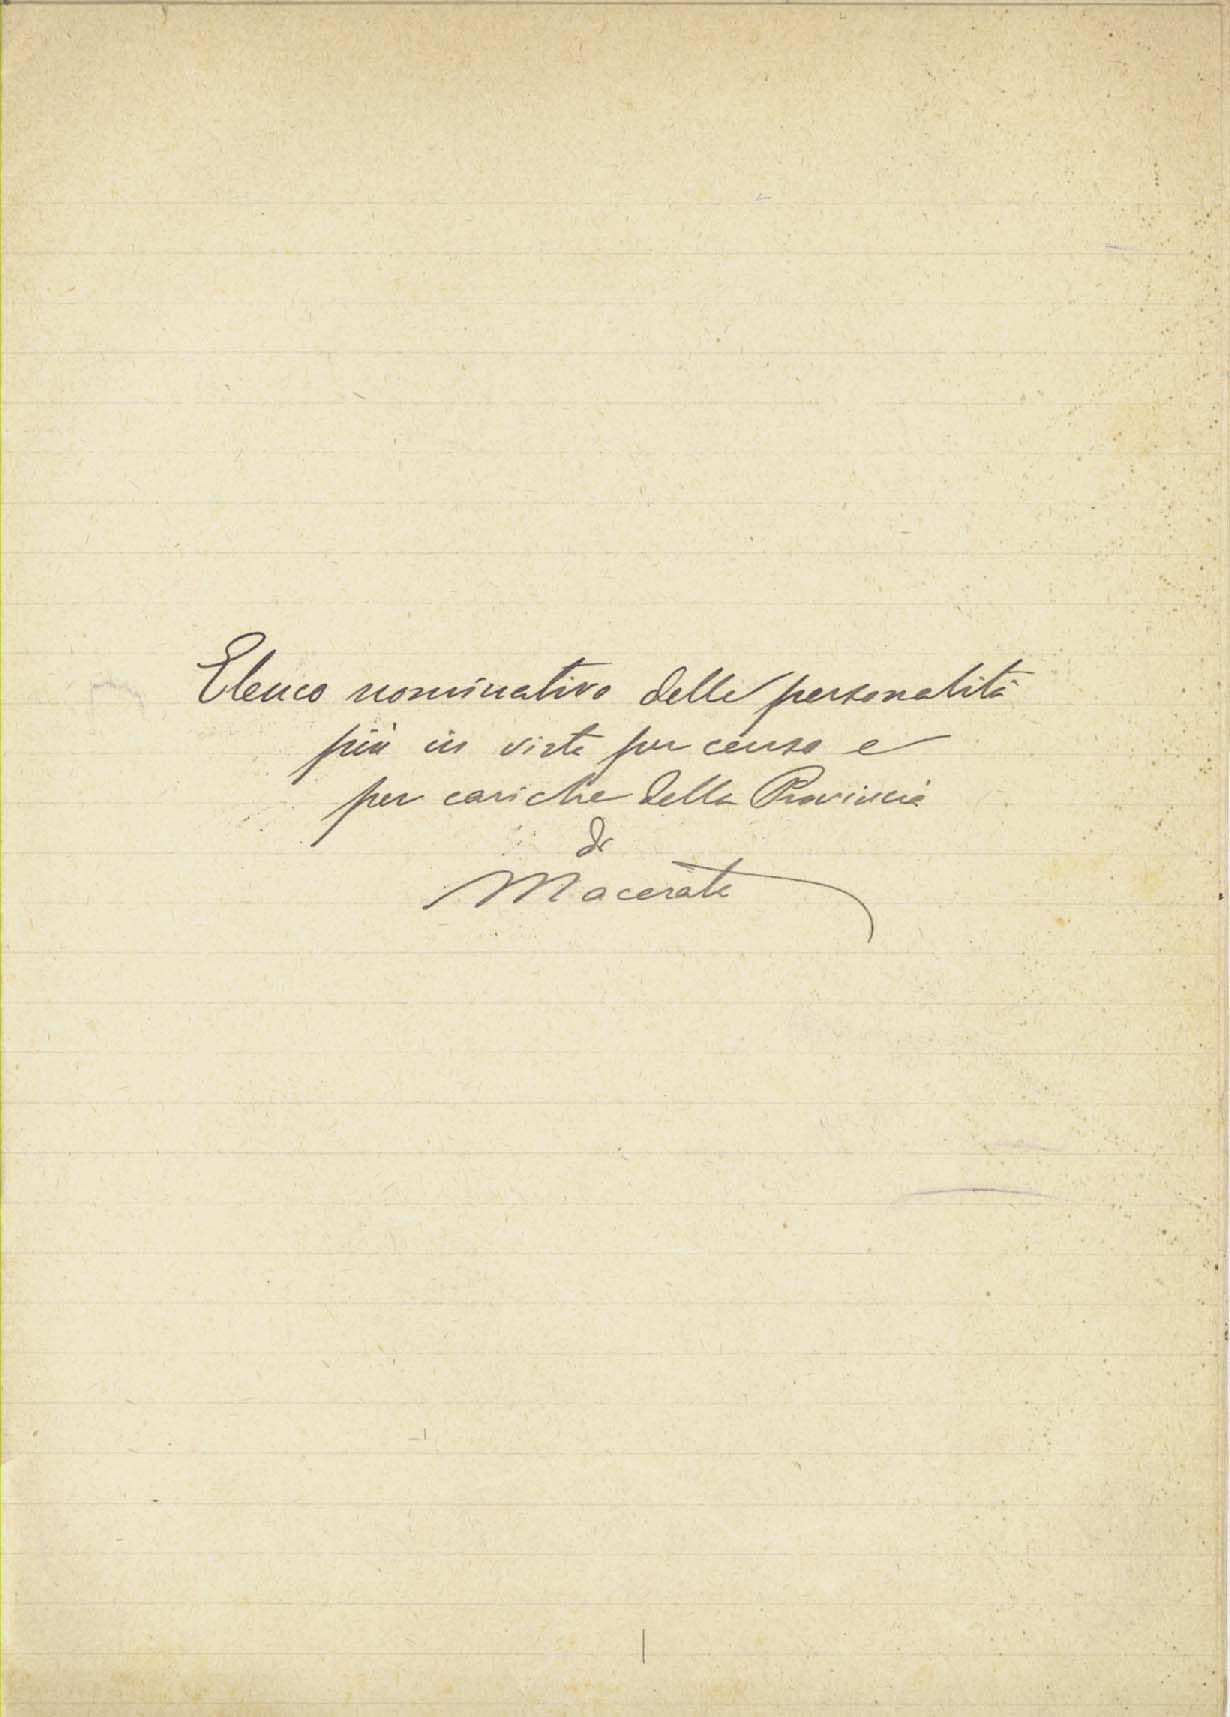 Elenco nominativo delle personalità
più in vista per censo e
per cariche della Provincia
di
Macerata